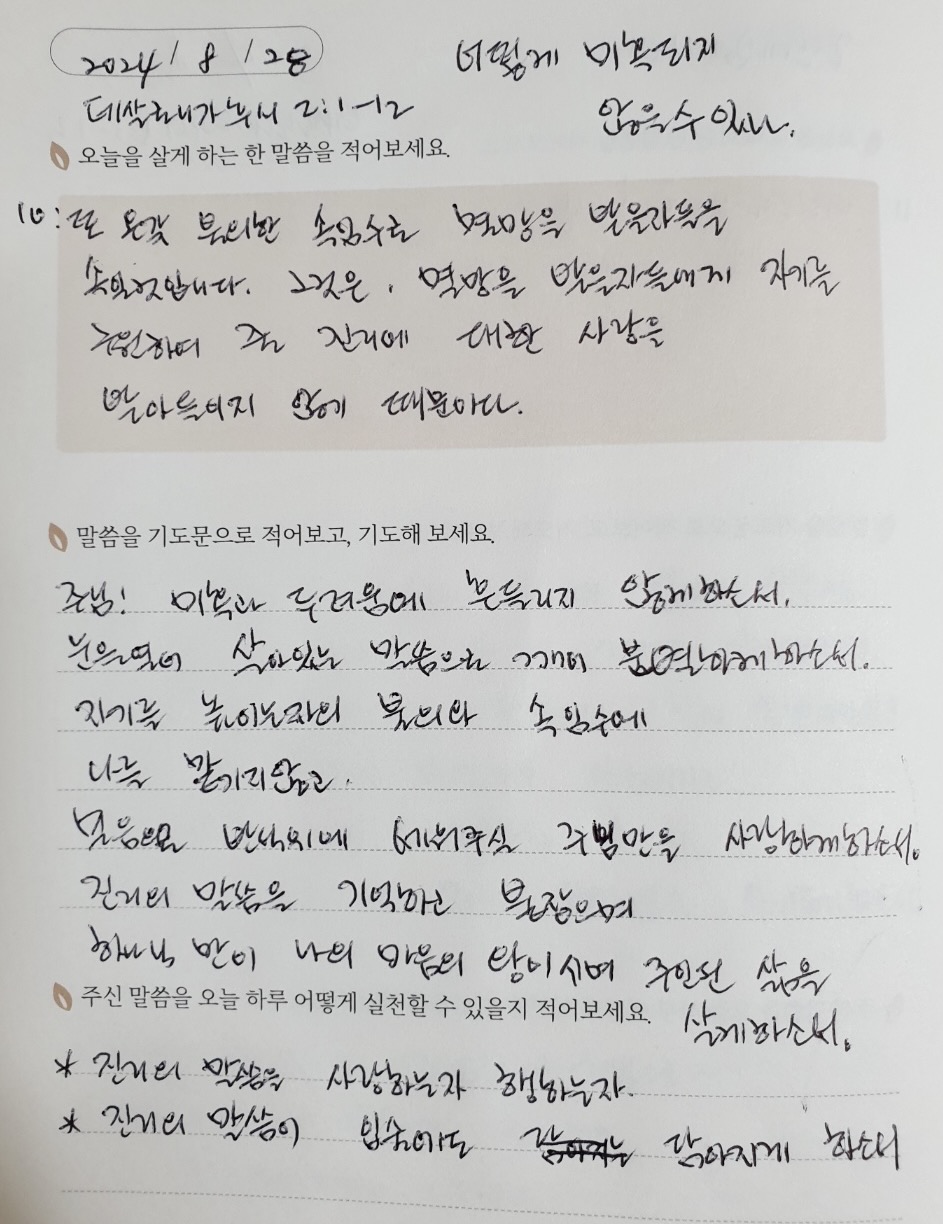 2024/8/28
어떻게 미혹되지
데살로니가후서 2:1-12
않을 수 있나.
오늘을 살게 하는 한 말씀을 적어보세요.
10: 또 온갖 불의한 속임수로 멸망을 받을자들을
속일것입니다. 그것은, 멸망을 받을자들에게 자기를
구원하여 줄 진리에 대한 사랑을
받아들이지 않기 때문이다.
말씀을 기도문으로 적어보고, 기도해 보세요.
주님! 미혹과 두려움에 흔들리지 않게하소서.
살아있는 말씀으로 깨어 분별하게하소서.
자기를 높이는자의 불의와 속임수에
나를 맡기지않고.
믿음으로 반석위에 세워주실 주님만을 사랑하게하소서.
진리의 말씀을 기억하고 붙잡으며
하나님 만이 나의 마음의 왕이시며 주인된 삶을
주신 말씀을 오늘 하루 어떻게 실천할 수 있을지 적어보세요.
살게하소서.
* 진리의 말씀을 사랑하는자 행하는자.
* 진리의 말씀이 입술에도 닮아지게 하소서